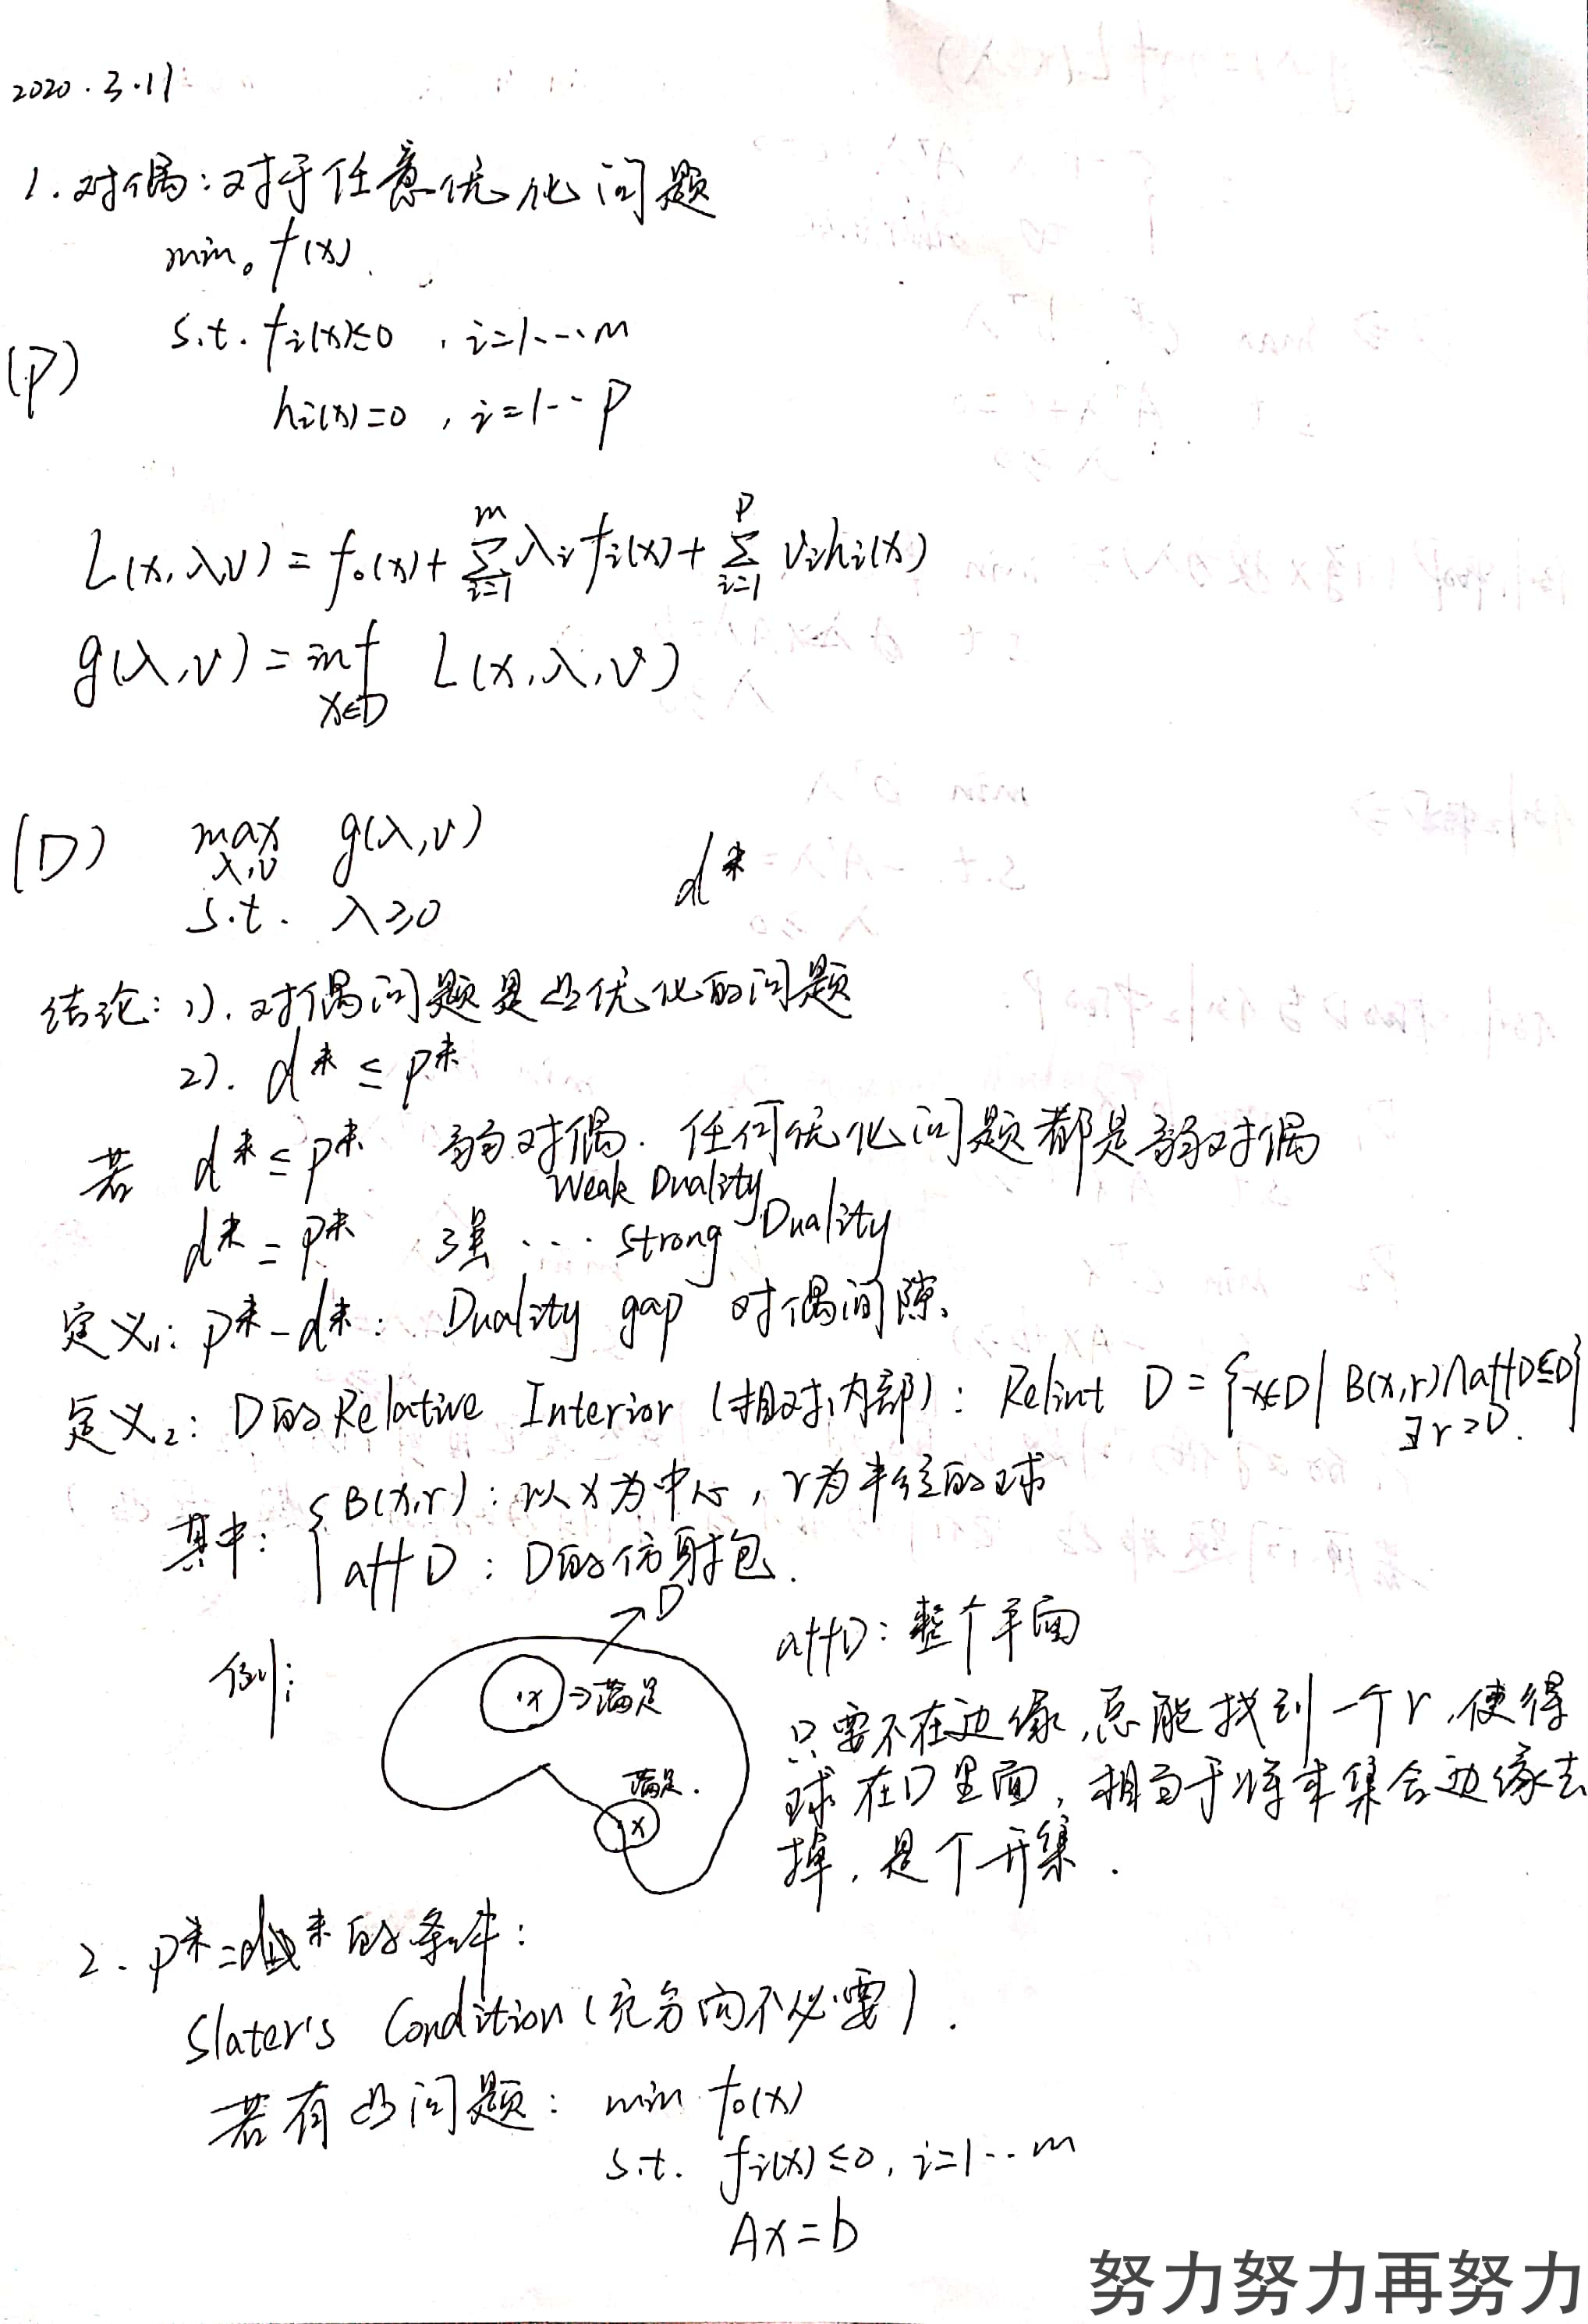 2020.3.11
1.对偶:对于任意优化问题
min。f(x).
(P) s.t. fi(x)≤0 , i=1、…m
hi(x)=0 , i=1…p
L(x,λ,ν) = f₀(x)+ ∑_{i=1}^{m} λi fi(x)+ ∑_{i=1}^{p} νihi(x)
g(λ,ν) = inf_{x∈D} L(x,λ,ν)
(D) max_{λ,ν} g(λ,ν) d*
s.t. λ≥0
结论: 1).对偶问题是凸优化的问题
2). d* ≤ p*
若 d* ≤ p* 弱对偶. 任何优化问题都是弱对偶
Weak Duality
d* = p* 强 … Strong Duality
定义₁: p*-d*: Duality gap 对偶间隙、
定义₂: D的Relative Interior (相对内部): Relint D = {x∈D| B(x,r)∩aff D⊆D}
∃r>0.
其中: { B(x,r): 以x为中心,r为半径的球
aff D : D的仿射包.
D
例: ·x ⇒满足
满足.
x
aff D: 整个平面
只要不在边缘,总能找到一个r,使得
球在D里面,相当于将本集合边缘去
掉,是个开集.
2. p*=d*的条件:
Slater's Condition (充分而不必要).
若有凸问题: min f₀(x)
s.t. fi(x)≤0, i=1…m
Ax=b
努力努力再努力